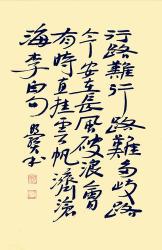 行路難行路難多歧路
今安在長風破浪會
有時直挂雲帆濟滄
海李白句